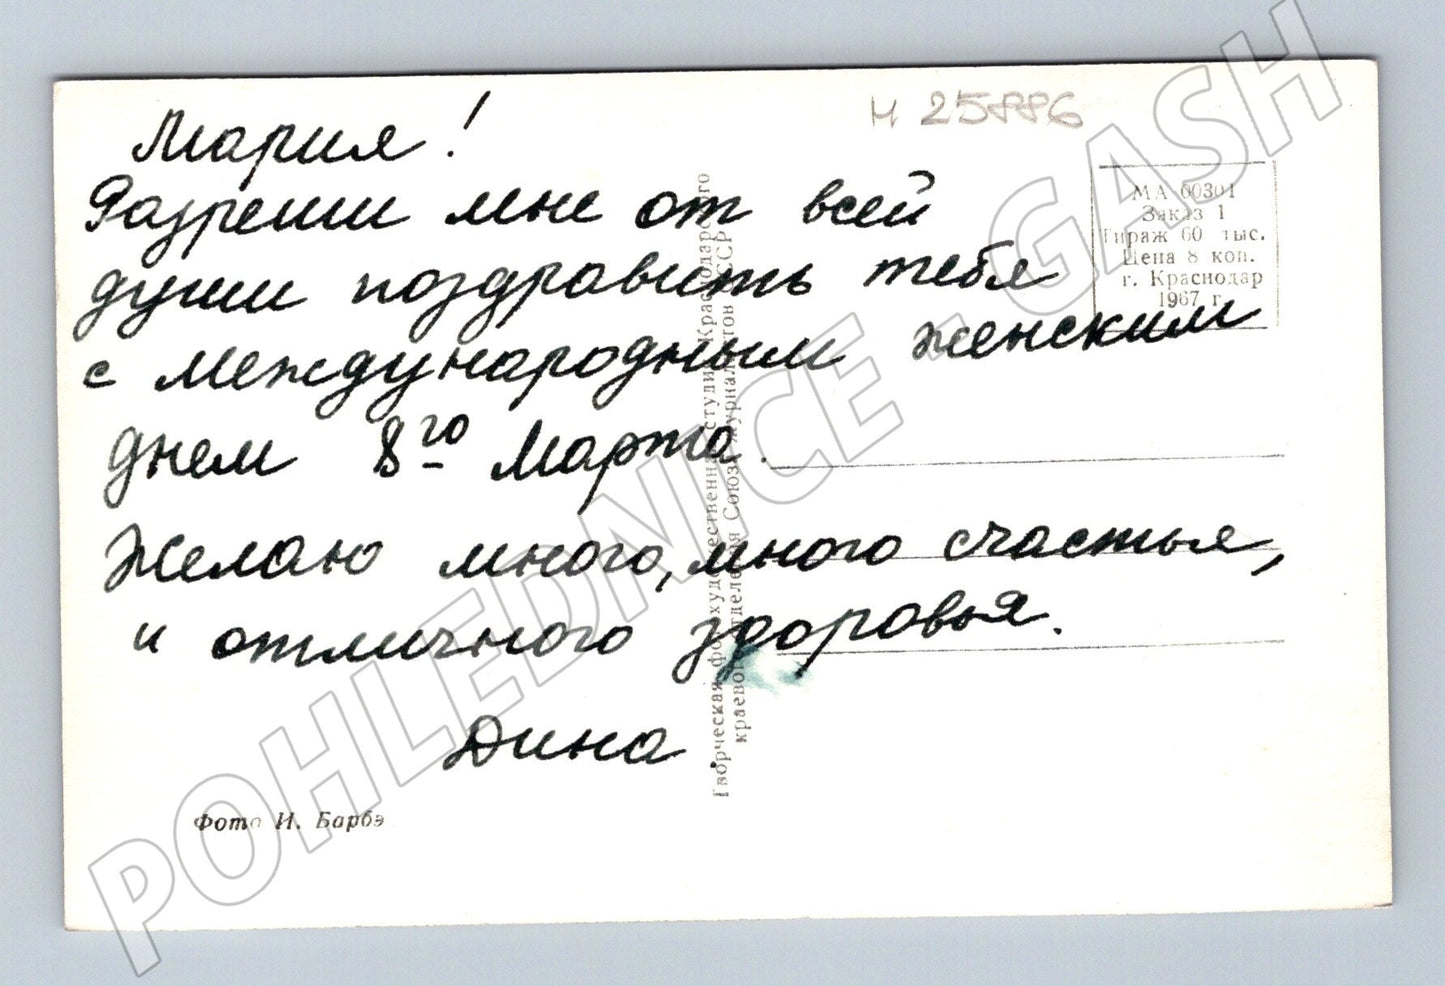 Н 25886
Мария!
Разреши мне от всей
души поздравить тебя
с Международным женским
днем 8го Марта.
Желаю много, много счастья,
и отличного здоровья.
Дина.
Фото И. Барбэ
МА 00301
Заказ 1
Тираж 60 тыс.
Цена 8 коп.
г. Краснодар
1967 г.
Творческая фотохудожественная студия Краснодарского
краевого отделения Союза журналистов СССР
POHLEDNICE - GASH